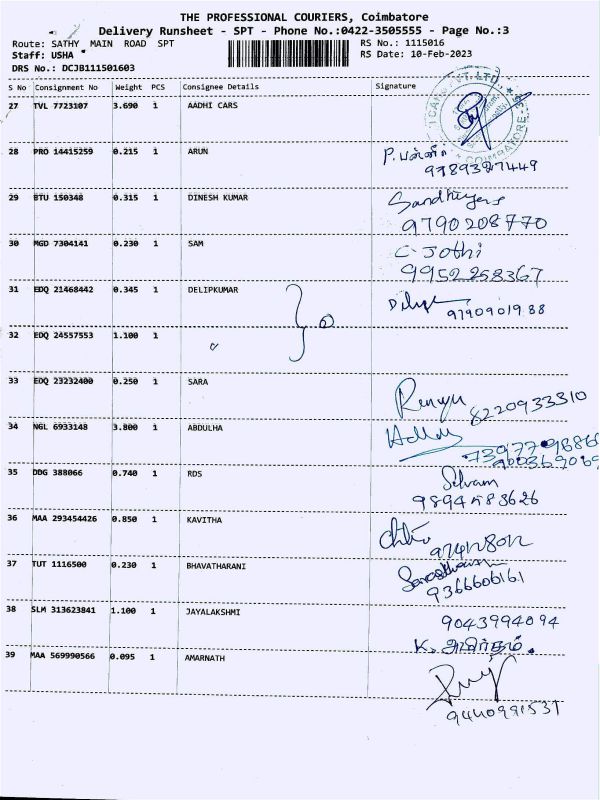 THE PROFESSIONAL COURIERS, Coimbatore
Delivery Runsheet - SPT - Phone No.:0422-3505555 - Page No.:3
Route: SATHY MAIN ROAD SPT RS No.: 1115016
Staff: USHA RS Date: 10-Feb-2023
DRS No.: DCJB111501603
S No Consignment No Weight PCS Consignee Details Signature
27 TVL 7723107 3.690 1 AADHI CARS
COIMBATORE
28 PRO 14415259 0.215 1 ARUN P.
9789387449
29 BTU 150348 0.315 1 DINESH KUMAR
9790208770
30 MGD 7304141 0.230 1 SAM C. Jothi
9952258367
31 EDQ 21468442 0.345 1 DELIPKUMAR Dilip
9790901988
32 EDQ 24557553 1.100 1
33 EDQ 23232400 0.250 1 SARA Renu
8220933310
34 NGL 6933148 3.800 1 ABDULHA
35 DDG 388066 0.740 1 RDS Selvam
9894583626
36 MAA 293454426 0.850 1 KAVITHA
37 TUT 1116500 0.230 1 BHAVATHARANI
9366606161
38 SLM 313623841 1.100 1 JAYALAKSHMI 9043994094
K. அமிர்தம்.
39 MAA 569990566 0.095 1 AMARNATH
9440991531